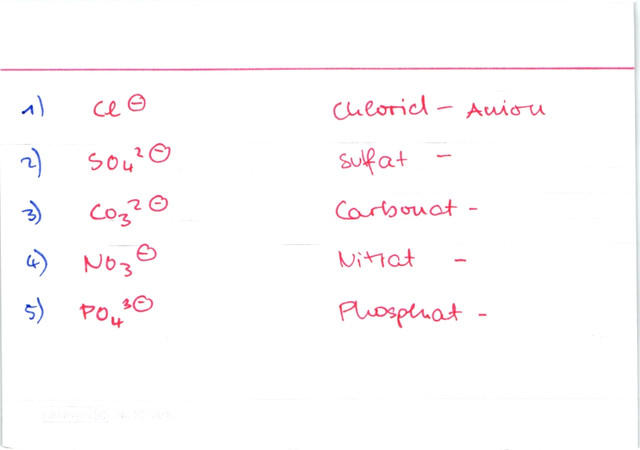 1) Cl⊖ Chlorid - Anion
2) SO₄²⊖ Sulfat -
3) CO₃²⊖ Carbonat -
4) NO₃⊖ Nitrat -
5) PO₄³⊖ Phosphat -